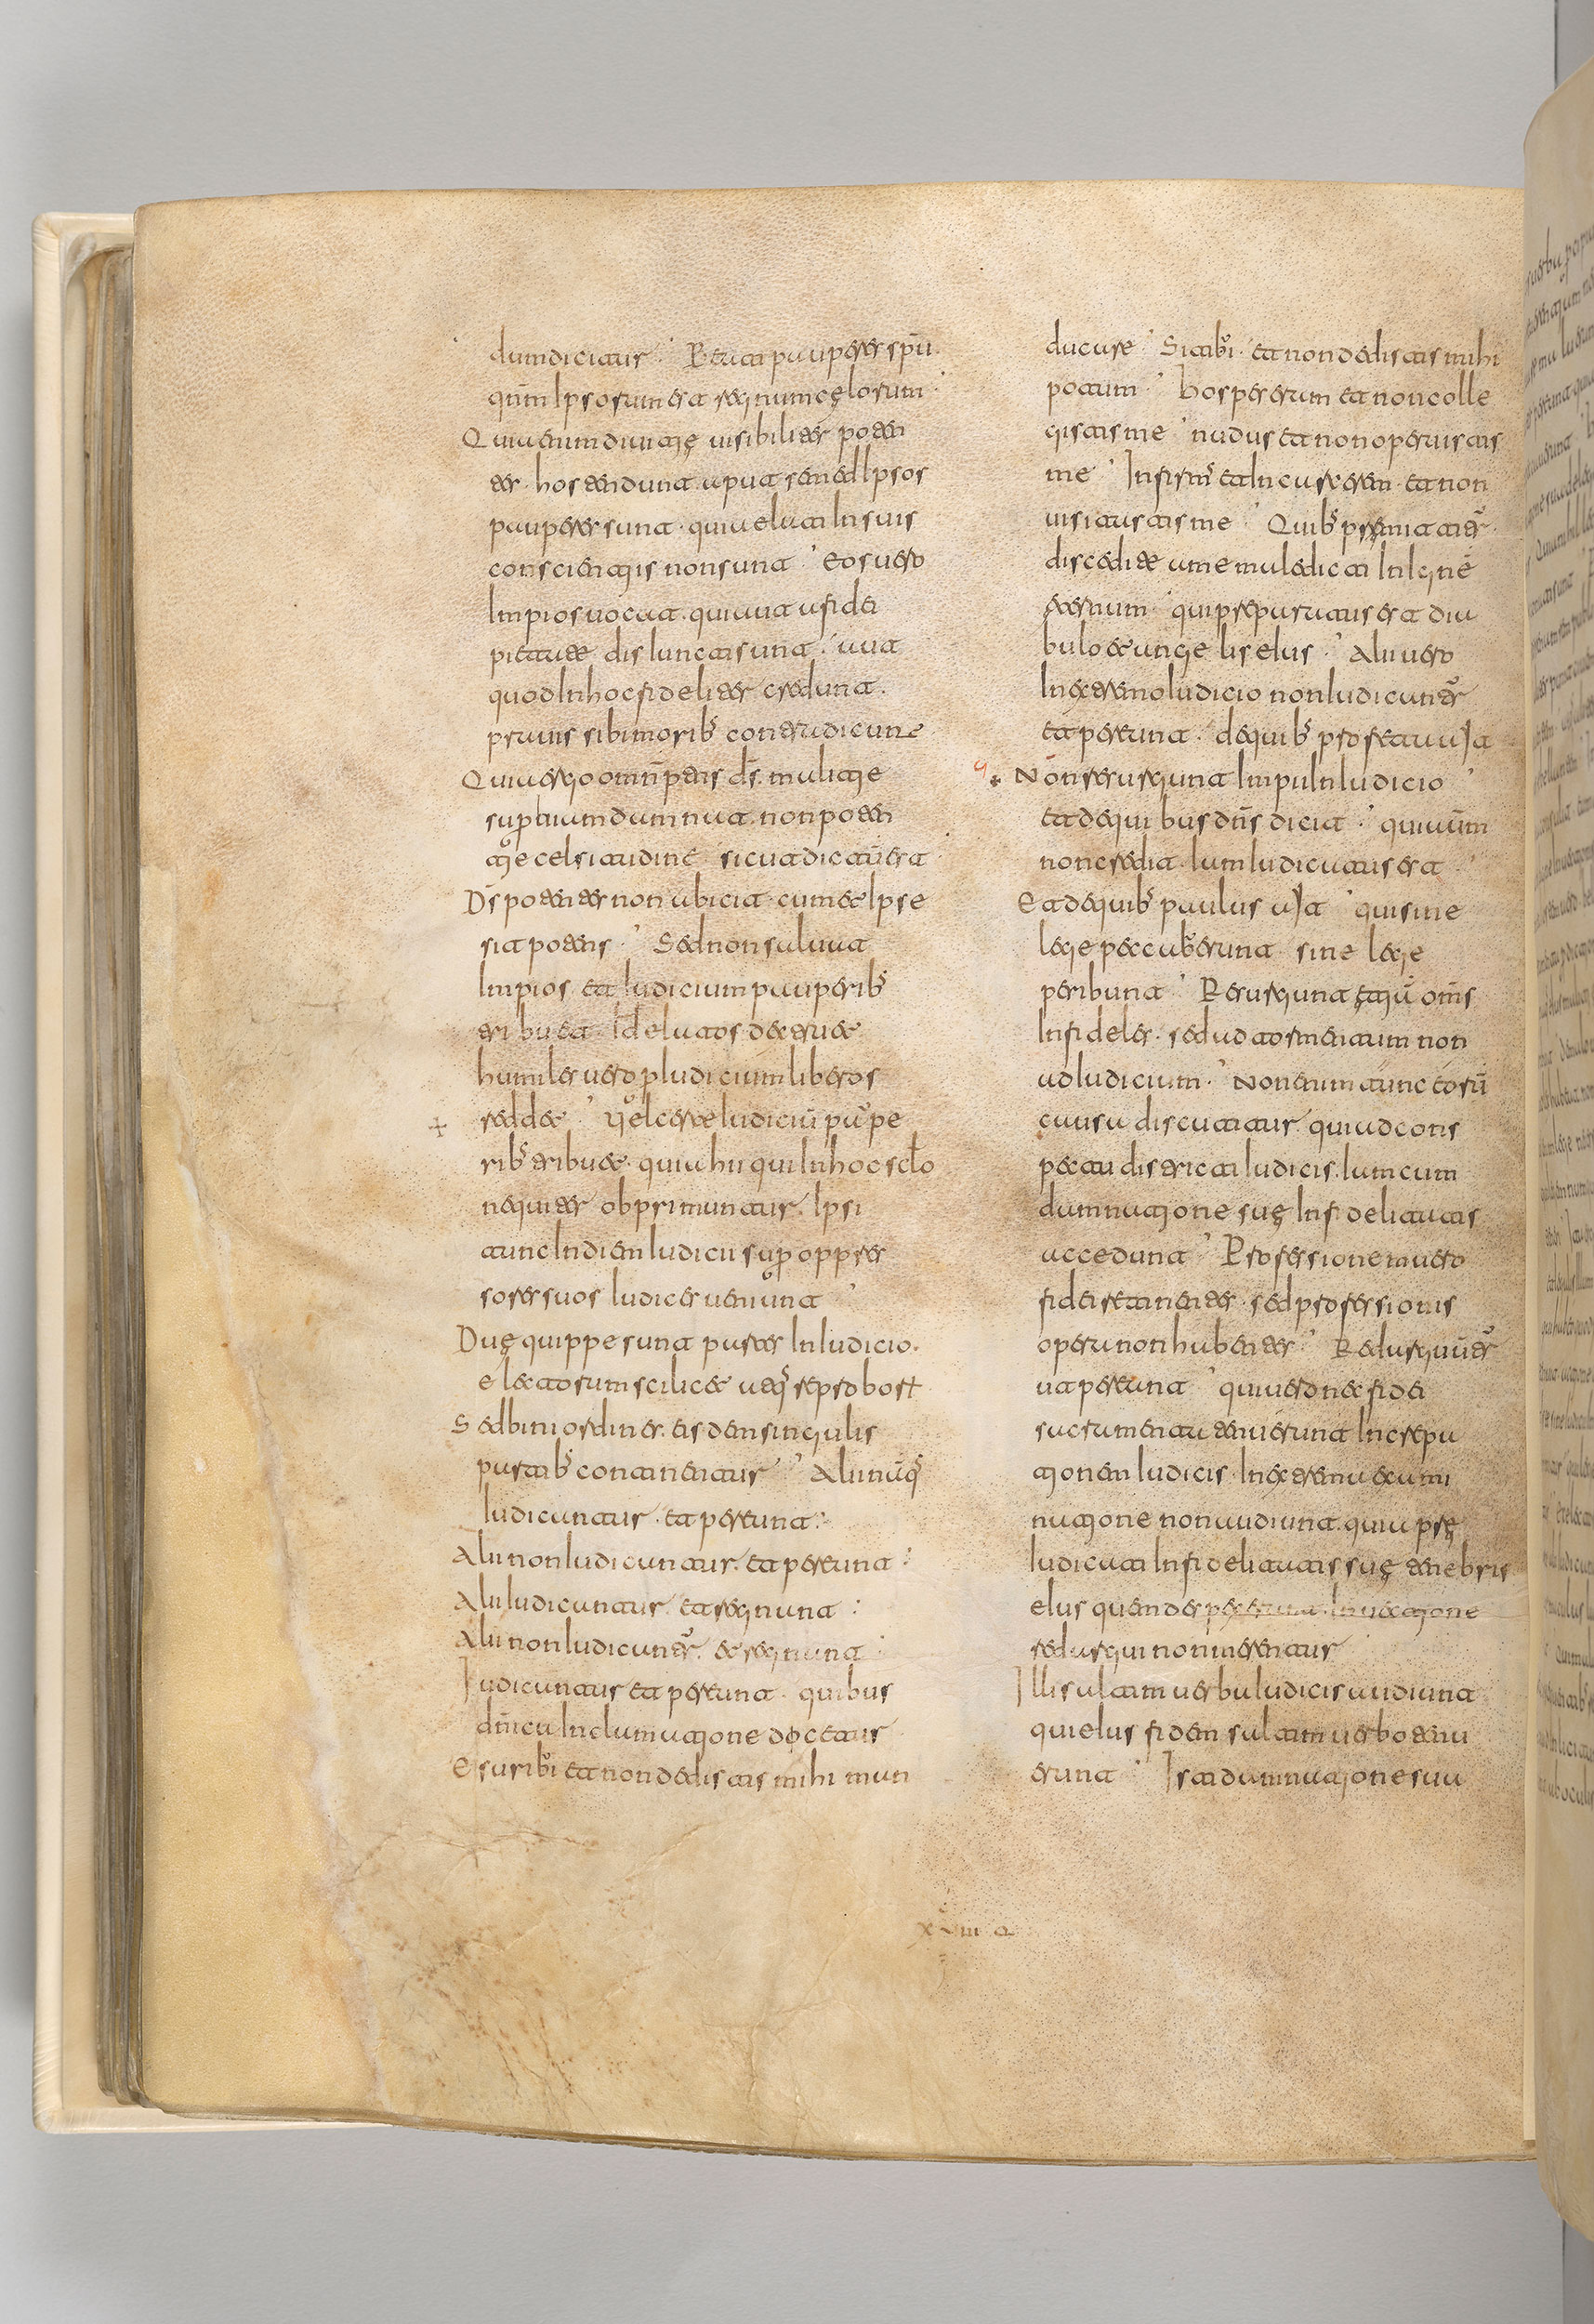 dum dicitur. Beati pauperes spu
qnm ipsorum est regnum cęlorum
Quia enim divitię visibiliter poten
ter. hos tendunt. apud semedipsos
pauperes sunt. quia elati in suis
conscientiis non sunt. Eos vero
impios vocat. qui aut a fidei
pietate disiuncti sunt. aut
quod in hoc fideliter credunt.
pravis sibi morib contradicunt
Quia ergo omnpotens ds. malitie
suprbiam damnat. non poten
tie celsitudine sicut dictu est
Ds potentes non abicit cum et ipse
sit potens. Sed non salvat
impios et iudicium pauperib
tribuet. Id elatos deterret
humiles vero p iudicium liberos
reddet. Vel certe iudiciu paupe
rib tribuet. quia hii qui in hoc sclo
nequiter obprimuntur. ipsi
tunc in diem iudicii supr oppres
sores suos iudices veniunt
Duę quippe sunt partes in iudicio.
electorum scilicet atq reproborum
Sed bini ordines. eisdem singulis
partib continentur. Alii namq
iudicuntur. et pereunt.
Alii non iudicantur. et pereunt.
Alii iudicantur. et regnant.
Alii non iudicantr. et regnant
Iudicantur et pereunt. quibus
dnica inclamatione docetur
Esuribi et non dedistis mihi man
ducare. Sitibi. et non dedistis mihi
potum. hospes eram et non colle
gistis me. nudus et non operuistis
me. Infirms et in carcerem. et non
visitastis me. Quib pręmittitr.
discedite a me maledicti in igne
eternum. qui preparatus est dia
bulo et angelis eius. Alii vero
in extremo iudicio non iudicantr
et pereunt. de quib profeta ait
Non resurgunt impii in iudicio
et de quibus dns dicit. qui aum
non credit. iam iudicatus est
Et de quib paulus ait. qui sine
lege peccaberunt sine lege
peribunt. Resurgunt ętia oms
infideles. sed ad tormentum non
ad iudicium. Non enim tunc eoru
causa discutitur. quia ad cons
pectu districti iudicis. iam cum
damnatione suę infidelitatis
accedunt. Professionem vero
fidei retinentes. sed professionis
opera non habentes. Redarguuntr
ut pereunt. qui vero nec fidei
sacramenta tenuerunt increpa
tionem iudicis. in extrema exami
natione non audiunt. quia prę
iudicati infidelitatis suę tenebris
eius quem despexerunt invectione
redargui non merentur
Illi saltim verba iudicis audiunt
qui eius fidem saltim verbo tenu
erunt. Isti damnatione sua